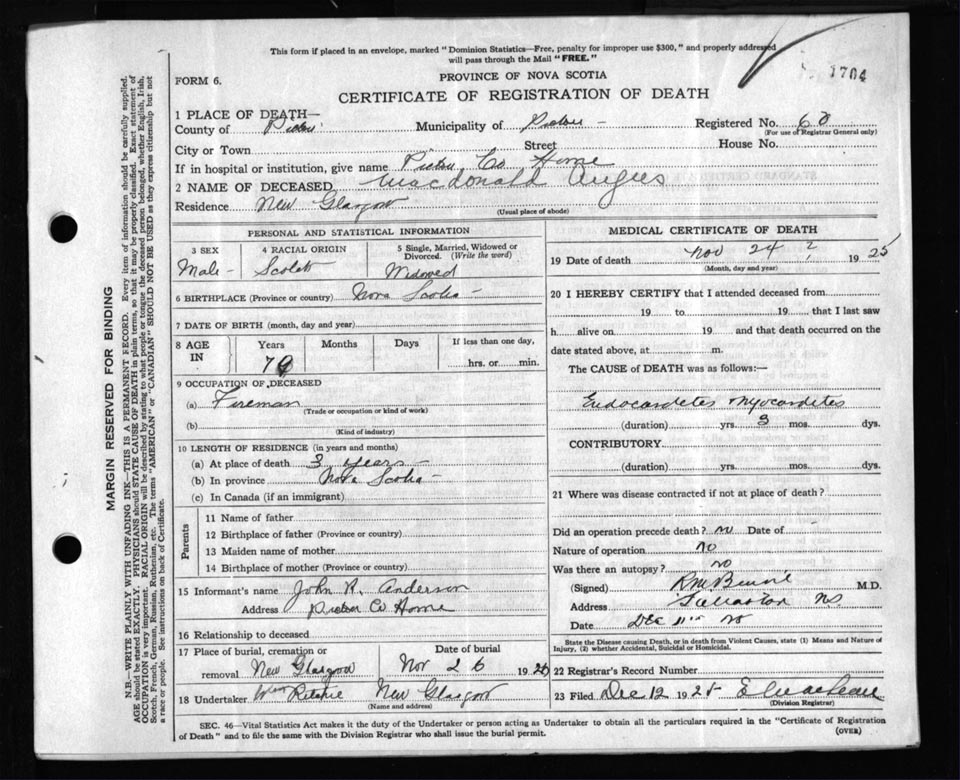 This form if placed in an envelope, marked "Dominion Statistics—Free, penalty for improper use $300," and properly addressed
will pass through the Mail "FREE."
1704
FORM 6.
PROVINCE OF NOVA SCOTIA
CERTIFICATE OF REGISTRATION OF DEATH
1 PLACE OF DEATH—
County of Pictou Municipality of Pictou – Registered No. 60
(For use of Registrar General only)
City or Town Street House No.
If in hospital or institution, give name Pictou Co Home
2 NAME OF DECEASED Macdonald Angus
Residence New Glasgow
(Usual place of abode)
PERSONAL AND STATISTICAL INFORMATION
3 SEX 4 RACIAL ORIGIN 5 Single, Married, Widowed or
Divorced. (Write the word)
Male – Scotch Widowed
6 BIRTHPLACE (Province or country) Nova Scotia –
7 DATE OF BIRTH (month, day and year)
8 AGE IN Years Months Days If less than one day,
hrs. or min.
9 OCCUPATION OF DECEASED
(a) Fireman
(Trade or occupation or kind of work)
(b)
(Kind of industry)
10 LENGTH OF RESIDENCE (in years and months)
(a) At place of death 3 years
(b) In province Nova Scotia –
(c) In Canada (if an immigrant)
Parents
11 Name of father
12 Birthplace of father (Province or country)
13 Maiden name of mother
14 Birthplace of mother (Province or country)
15 Informant's name John R. Anderson
Address Pictou Co Home
16 Relationship to deceased
17 Place of burial, cremation or Date of burial
removal New Glasgow Nov 26 19
18 Undertaker Wm Ritchie New Glasgow
(Name and address)
MEDICAL CERTIFICATE OF DEATH
19 Date of death Nov 24 1925
(Month, day and year)
20 I HEREBY CERTIFY that I attended deceased from
19 to 19 that I last saw
h alive on 19 and that death occurred on the
date stated above, at m.
The CAUSE of DEATH was as follows:—
Endocardetes Myocardetes
(duration) yrs. 3 mos. dys.
CONTRIBUTORY
(duration) yrs. mos. dys.
21 Where was disease contracted if not at place of death?
Did an operation precede death? no Date of
Nature of operation no
Was there an autopsy? no
(Signed) M.D.
Address NS
Date Dec 11
State the Disease causing Death, or in death from Violent Causes, state (1) Means and Nature of
Injury, (2) whether Accidental, Suicidal or Homicidal.
22 Registrar's Record Number
23 Filed Dec 12 1925
(Division Registrar)
SEC. 46—Vital Statistics Act makes it the duty of the Undertaker or person acting as Undertaker to obtain all the particulars required in the "Certificate of Registration
of Death" and to file the same with the Division Registrar who shall issue the burial permit.
(OVER)
MARGIN RESERVED FOR BINDING
N.B.—WRITE PLAINLY WITH UNFADING INK—THIS IS A PERMANENT RECORD. Every item of information should be carefully supplied.
AGE should be stated EXACTLY. PHYSICIANS should STATE CAUSE OF DEATH in plain terms, so that it may be properly classified. Exact statement of
OCCUPATION is very important. RACIAL ORIGIN will be described by stating to what people or tongue the deceased person belonged, whether English, Irish,
Scotch, French, German, Russian, Ruthenian, etc. The terms "AMERICAN" or "CANADIAN" SHOULD NOT BE USED as they express citizenship but not
a race or people. See instructions on back of Certificate.